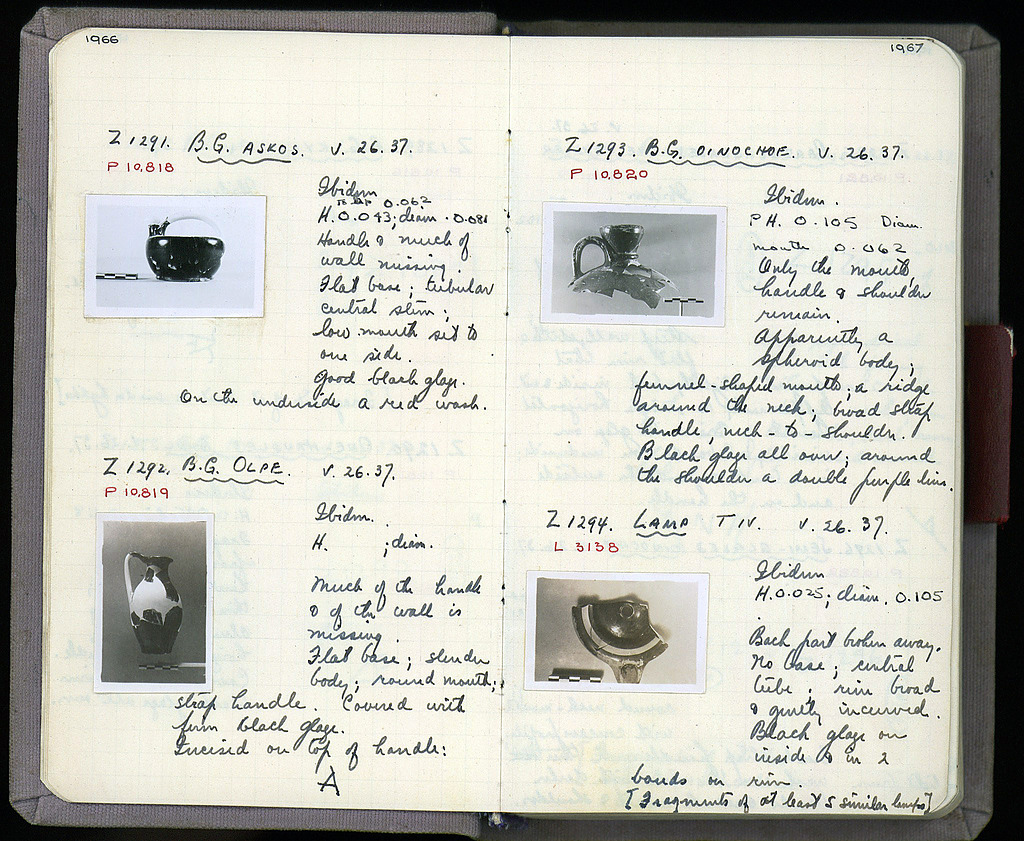 1966
Z 1291. B.G. ASKOS. V. 26. 37.
P 10,818
Ibidem
0.062
H. 0.043; diam. 0.081
Handle & much of
wall missing.
Flat base; tubular
central stem;
low mouth set to
one side.
Good black glaze.
On the underside a red wash.
Z 1292. B.G. OLPE. V. 26. 37.
P 10,819
Ibidem.
H. ; diam.
Much of the handle
& of the wall is
missing.
Flat base; slender
body; round mouth;
strap handle. Covered with
firm black glaze.
Incised on top of handle:
A
1967
Z 1293. B.G. OINOCHOE. V. 26. 37.
P 10,820
Ibidem.
P H. 0.105 Diam.
mouth 0.062
Only the mouth,
handle & shoulder
remain.
Apparently a
spheroid body;
funnel-shaped mouth; a ridge
around the neck; broad strap
handle, neck-to-shoulder.
Black glaze all over; around
the shoulder a double purple line.
Z 1294. LAMP T IV. V. 26. 37.
L 3138
Ibidem
H. 0.025; diam. 0.105
Back part broken away.
No base; central
tube; rim broad
& gently incurved.
Black glaze on
inside & in 2
bands on rim.
[Fragments of at least 5 similar lamps]